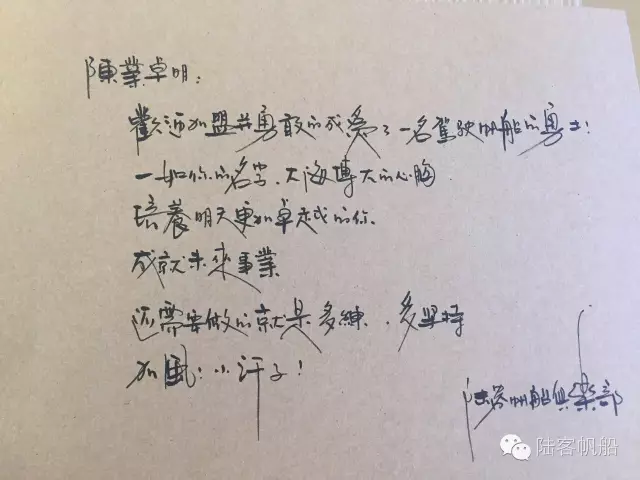 陳業卓明：
歡迎加盟并勇敢的成爲了一名駕駛帆船的勇士！
一如你的名字，大海博大的心胸
培養明天更加卓越的你
成就未來事業
还需要做的就是多練，多坚持
加風！小汗子！
陆客帆船俱樂部
陆客帆船